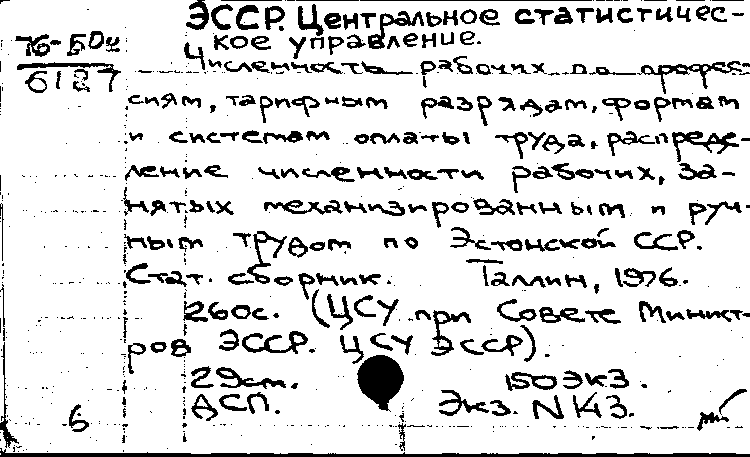 ЭССР. Центральное статистичес-
кое управление.
76-5Дч
6127
Численность рабочих по профес-
сиям, тарифным разрядам, формам
и системам оплаты труда, распреде-
ление численности рабочих, за-
нятых механизированным и руч-
ным трудом по Эстонской ССР.
Стат. сборник. Таллин, 1976.
260с. (ЦСУ при Совете Минист-
ров ЭССР. ЦСУ ЭССР).
29см. 150экз.
ДСП. Экз. N 143.
6